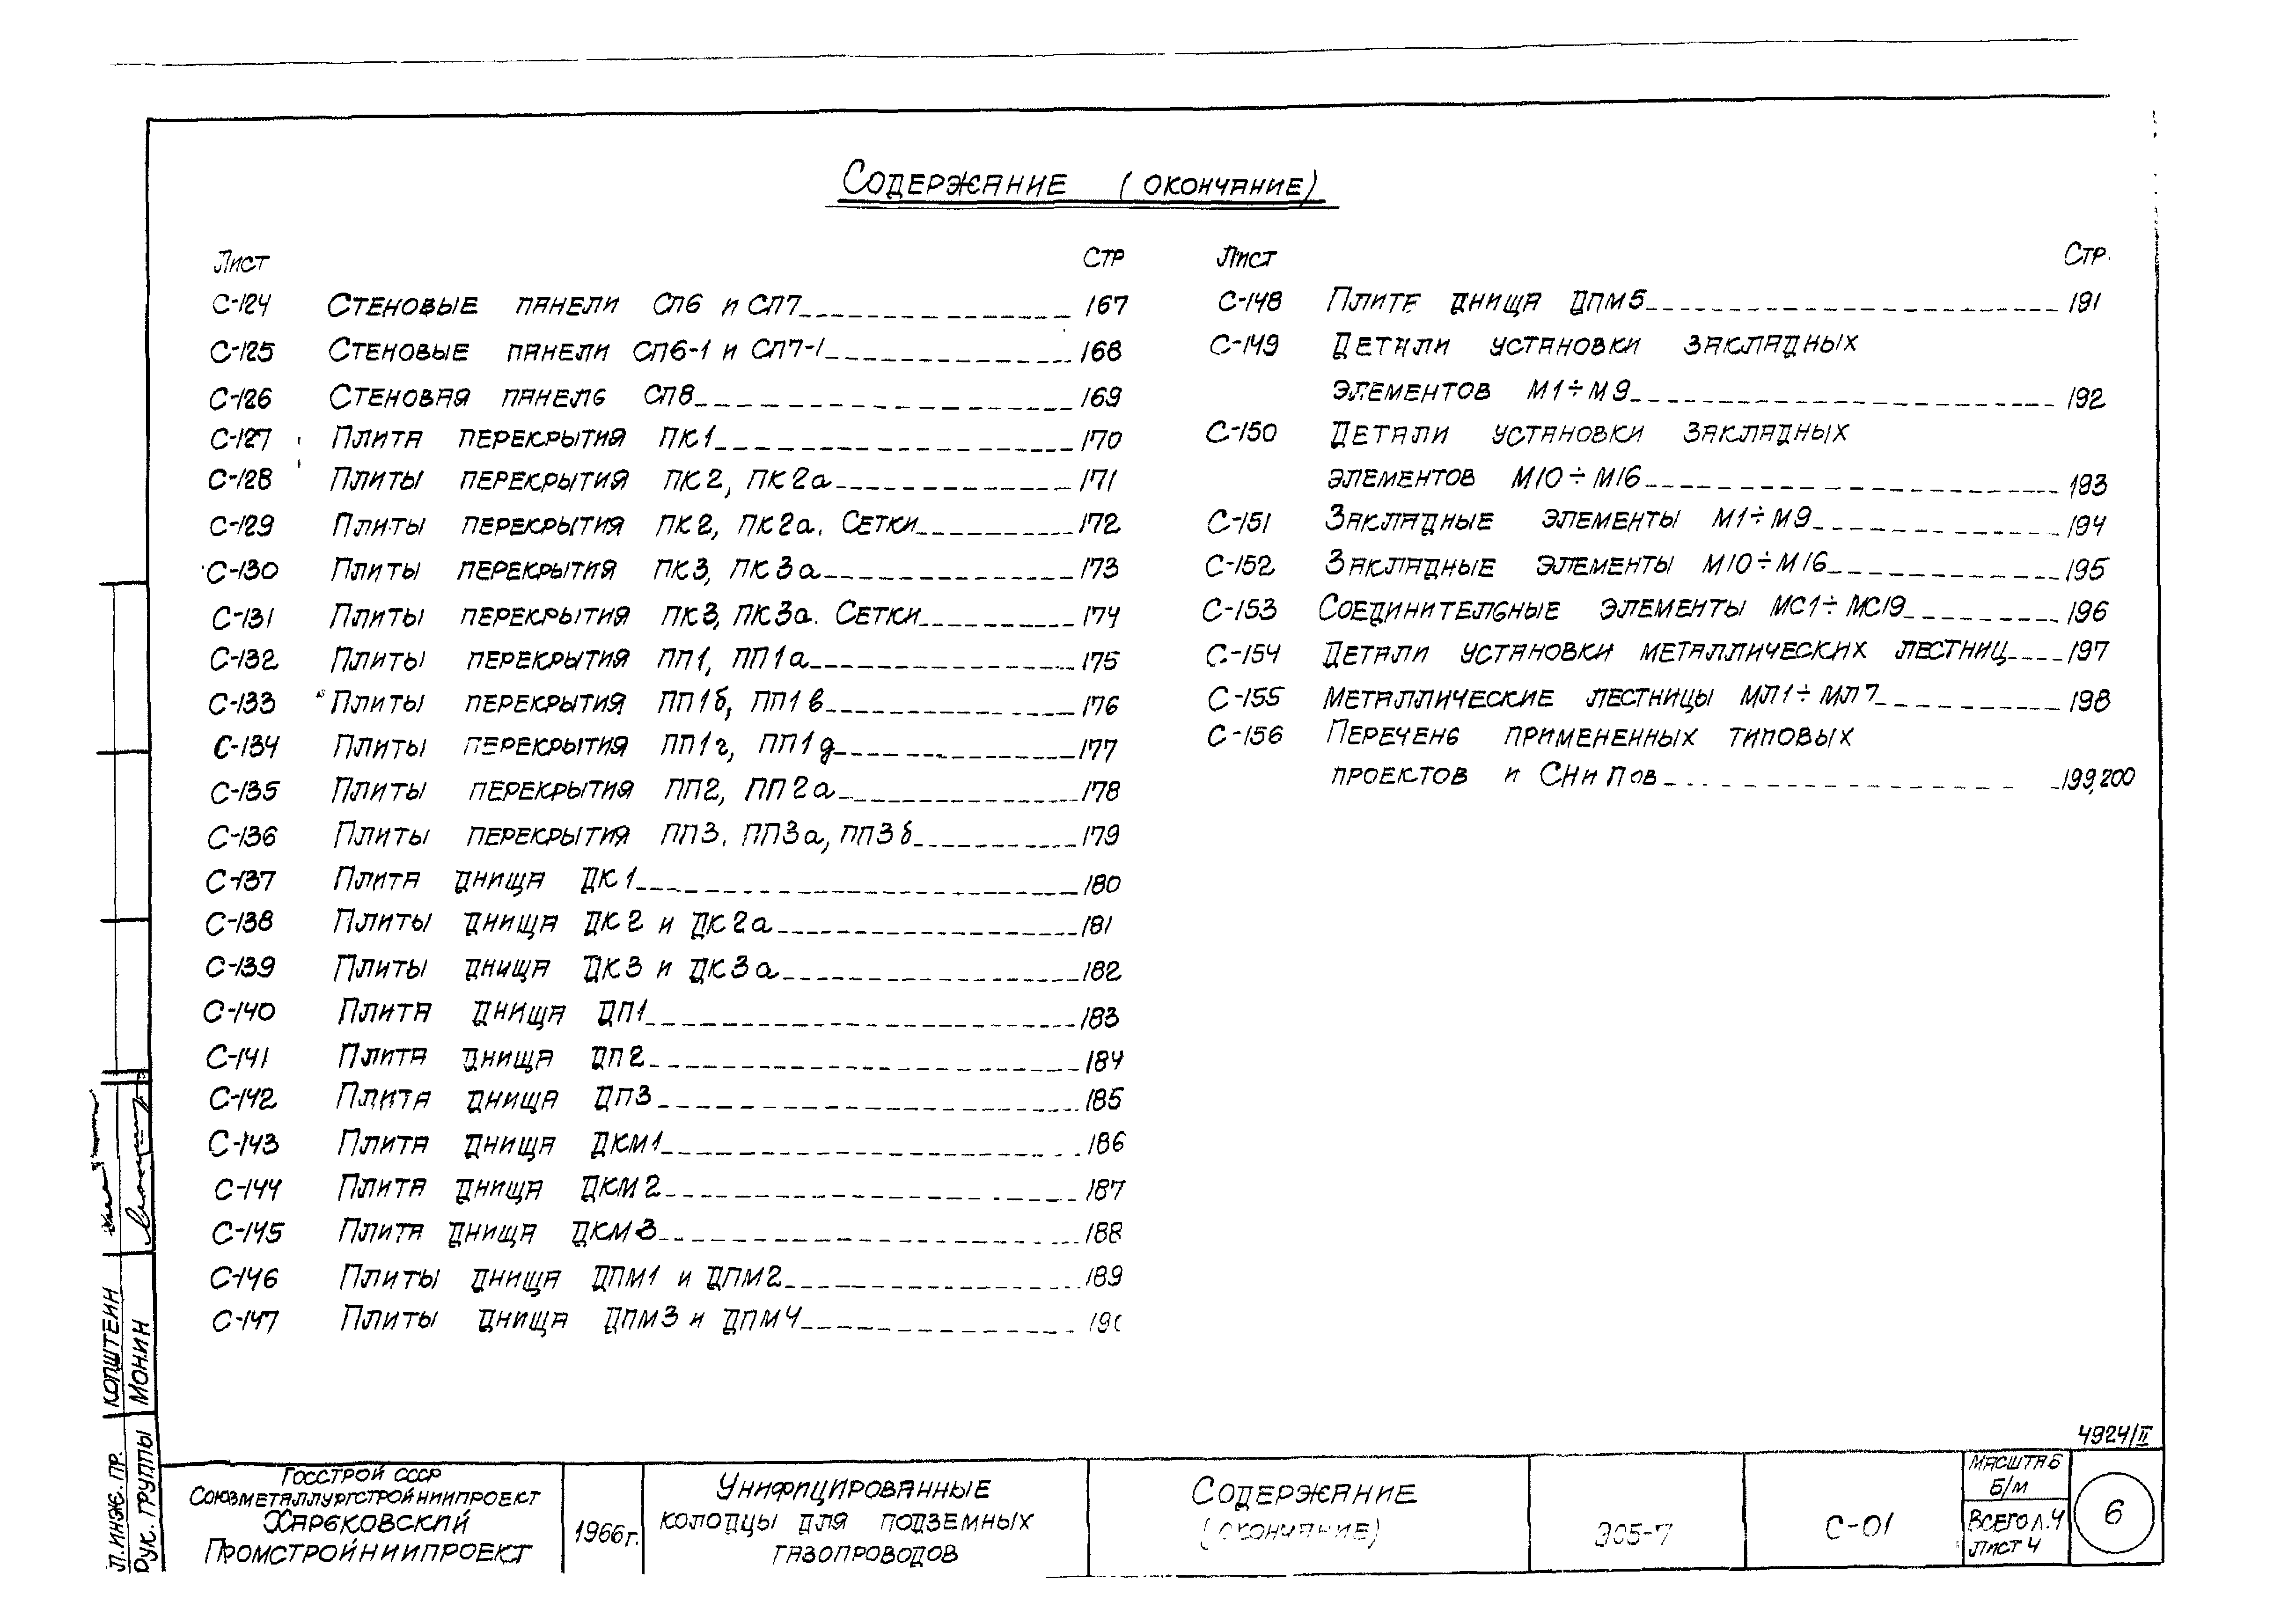 Содержание (окончание)
Лист Стр
С-124 Стеновые панели СП6 и СП7 167
С-125 Стеновые панели СП6-1 и СП7-1 168
С-126 Стеновая панель СП8 169
С-127 Плита перекрытия ПК1 170
С-128 Плиты перекрытия ПК2, ПК2а 171
С-129 Плиты перекрытия ПК2, ПК2а. Сетки 172
С-130 Плиты перекрытия ПК3, ПК3а 173
С-131 Плиты перекрытия ПК3, ПК3а. Сетки 174
С-132 Плиты перекрытия ПП1, ПП1а 175
С-133 Плиты перекрытия ПП1б, ПП1в 176
С-134 Плиты перекрытия ПП1г, ПП1д 177
С-135 Плиты перекрытия ПП2, ПП2а 178
С-136 Плиты перекрытия ПП3. ПП3а, ПП3б 179
С-137 Плита днища ДК1 180
С-138 Плиты днища ДК2 и ДК2а 181
С-139 Плиты днища ДК3 и ДК3а 182
С-140 Плита днища ДП1 183
С-141 Плита днища ДП2 184
С-142 Плита днища ДП3 185
С-143 Плита днища ДКМ1 186
С-144 Плита днища ДКМ2 187
С-145 Плита днища ДКМ3 188
С-146 Плиты днища ДПМ1 и ДПМ2 189
С-147 Плиты днища ДПМ3 и ДПМ4 190
Лист Стр.
С-148 Плита днища ДПМ5 191
С-149 Детали установки закладных
элементов М1÷М9 192
С-150 Детали установки закладных
элементов М10÷М16 193
С-151 Закладные элементы М1÷М9 194
С-152 Закладные элементы М10÷М16 195
С-153 Соединительные элементы МС1÷МС19 196
С-154 Детали установки металлических лестниц 197
С-155 Металлические лестницы МЛ1÷МЛ7 198
С-156 Перечень примененных типовых
проектов и СНиПов 199,200
Гл. инж. пр. Копштейн
Рук. группы Монин
4924/II
Госстрой СССР
Союзметаллургстройниипроект
Харьковский
Промстройниипроект
1966г.
Унифицированные
колодцы для подземных
газопроводов
Содержание
(окончание)
Э05-7
С-01
Масштаб
Б/м
Всего л. 4
Лист 4
6